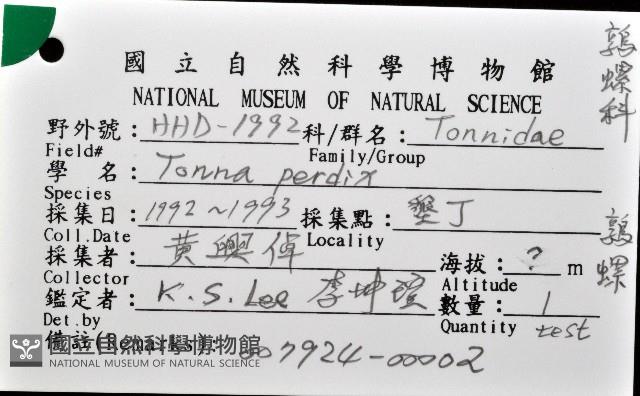 國立自然科學博物館
NATIONAL MUSEUM OF NATURAL SCIENCE
野外號: HHD-1992 科/群名: Tonnidae
Field# Family/Group
學 名: Tonna perdix
Species
採集日: 1992~1993 採集點: 墾丁
Coll.Date Locality
採集者: 黃興倬 海拔: ? m
Collector Altitude
鑑定者: K.S. Lee 李坤瑄 數量: 1
Det.by Quantity test
備註(Remarks): 007924-00002
國立自然科學博物館
NATIONAL MUSEUM OF NATURAL SCIENCE
鶉螺科
鶉螺